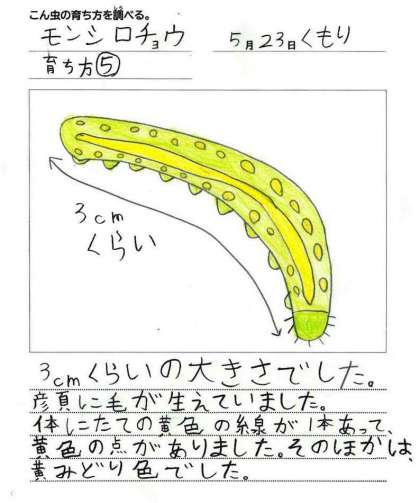 こん虫の育ち方を調べる。
モンシロチョウ 5月23日くもり
育ち方⑤
3cm
くらい
3cmくらいの大きさでした。
彦頁に毛が生えていました。
体にたての黄色の糸線が1本あって、
黄色の点がありました。そのほかは、
黄みどり色でした。